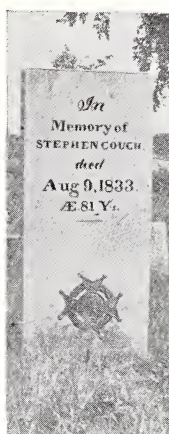 In
Memory of
STEPHEN COUCH.
died
Aug 9, 1833.
Æ. 81 Ys.